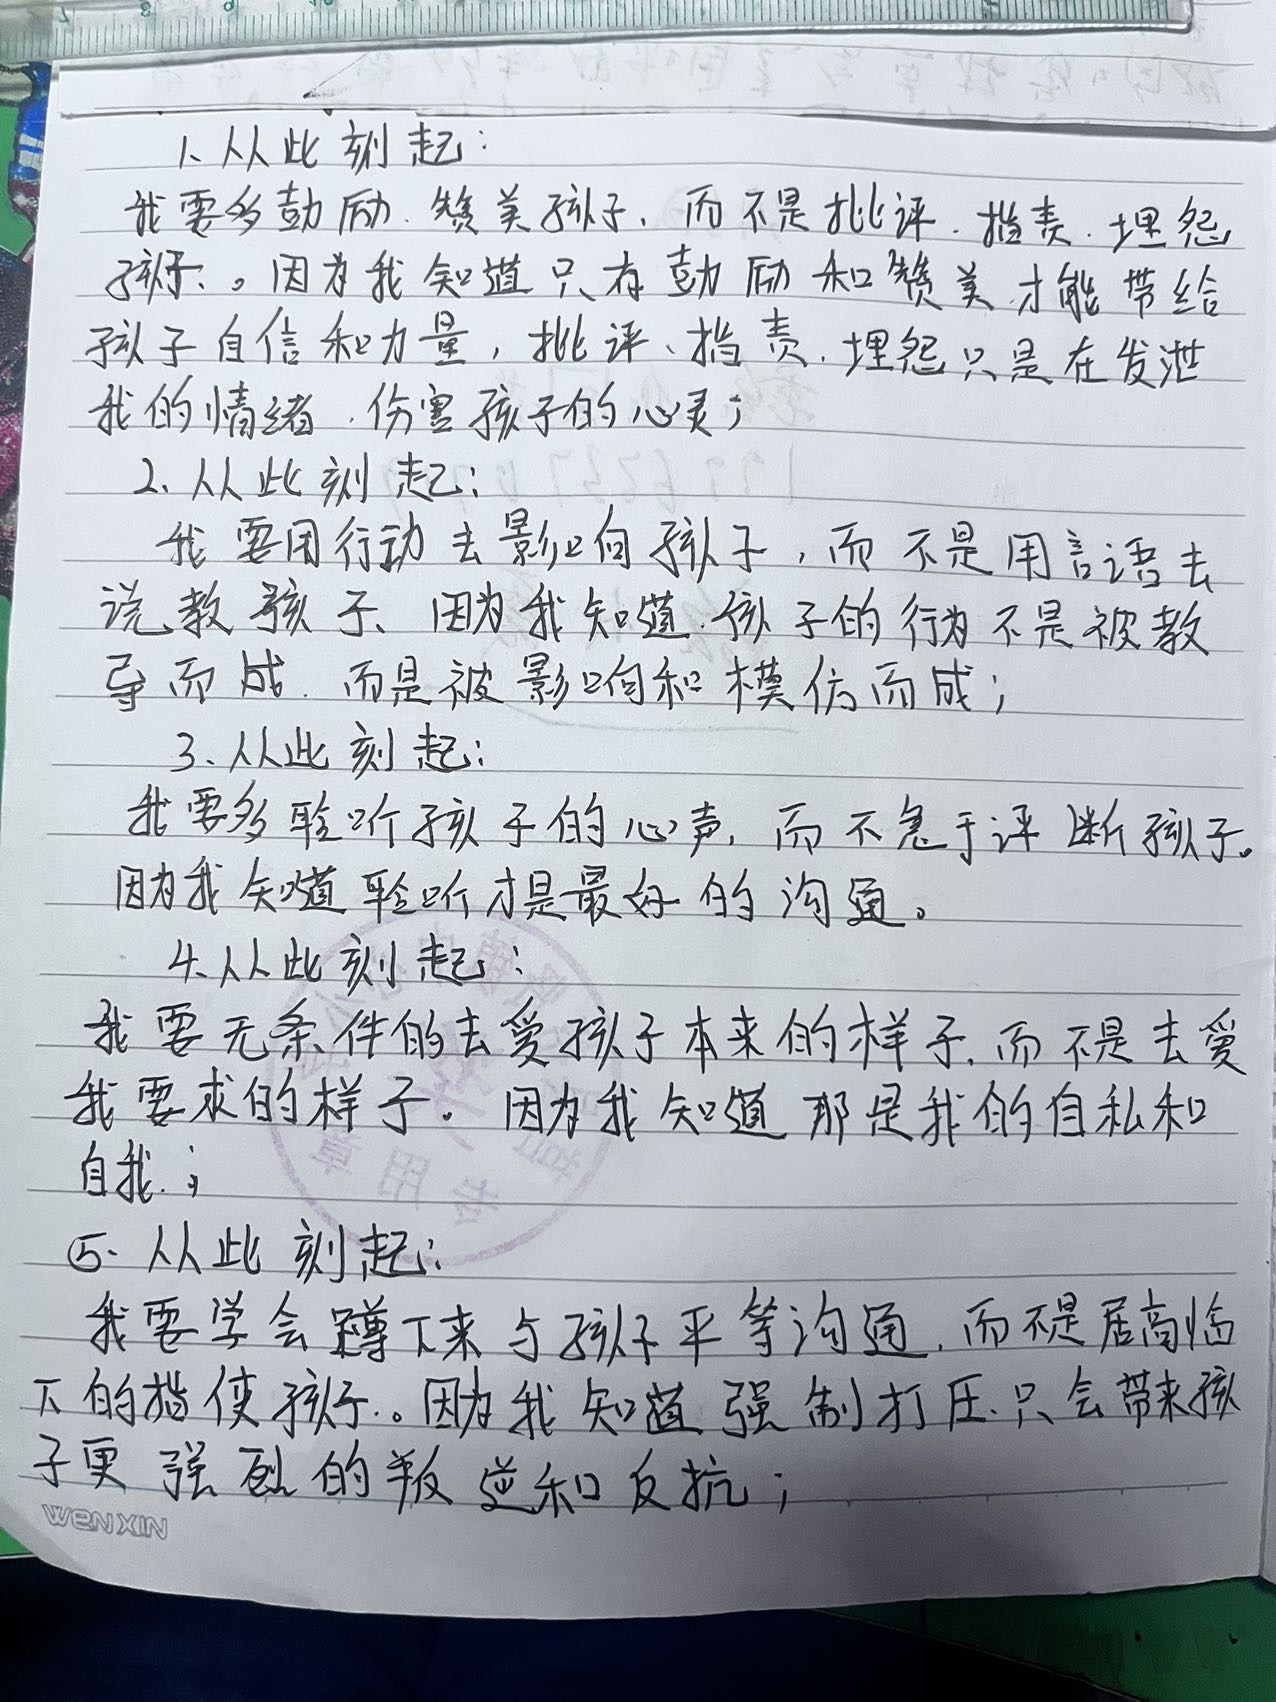 1、从此刻起：
我要多鼓励、赞美孩子，而不是批评、指责、埋怨
孩子、。因为我知道只有鼓励和赞美才能带给
孩子自信和力量，批评、指责、埋怨只是在发泄
我的情绪、伤害孩子的心灵；
2、从此刻起：
我要用行动去影响孩子，而不是用言语去
说教孩子、因为我知道、孩子的行为不是被教
导而成、而是被影响和模仿而成；
3、从此刻起：
我要多聆听孩子的心声，而不急于评断孩子。
因为我知道聆听才是最好的沟通。
4、从此刻起：
我要无条件的去爱孩子本来的样子，而不是去爱
我要求的样子。因为我知道那是我的自私和
自我、；
5、从此刻起：
我要学会蹲下来与孩子平等沟通，而不是居高临
下的指使孩子、。因为我知道强制打压、只会带来孩
子更强烈的叛逆和反抗；
WENXIN